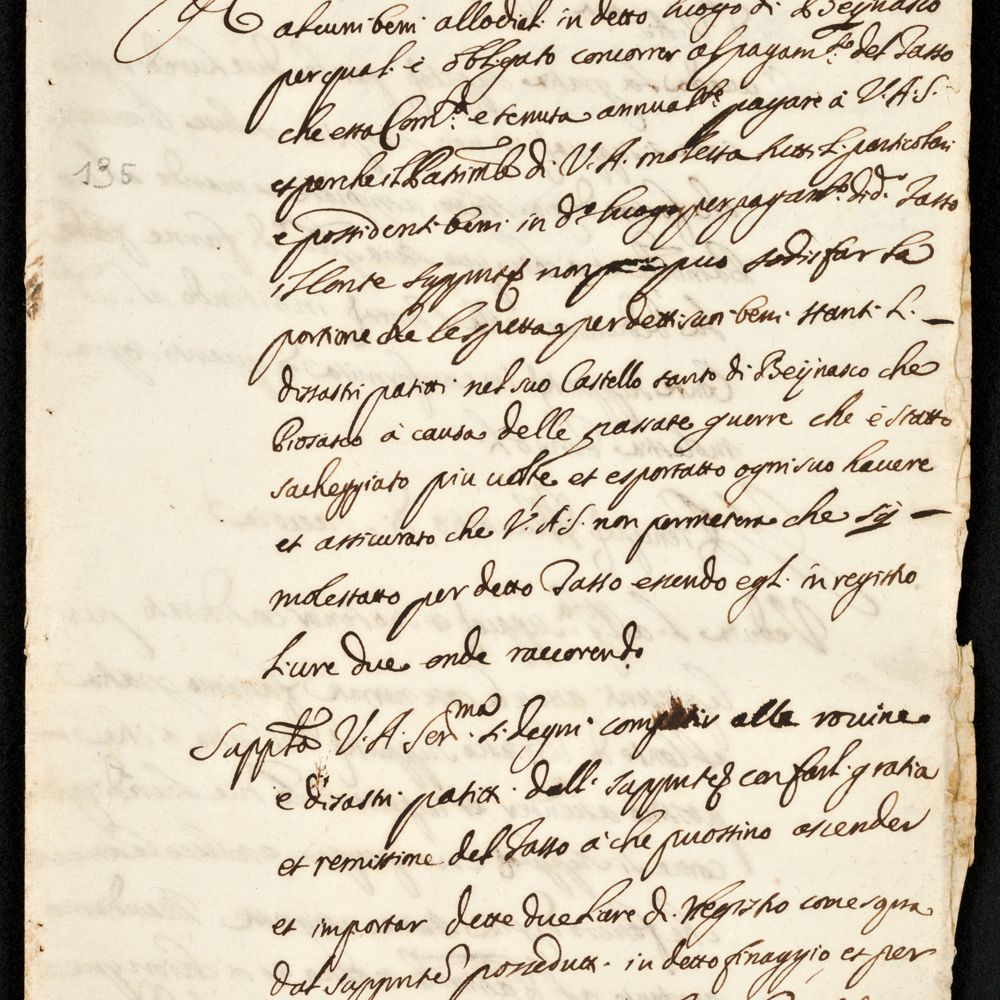 alcuni beni allodial. in detto luogo di Beijnasco
per qual. è obligato concorrer al pagam.to del Tasso
che essa Com.tà e tenuta annualm.te pagare à V.A.S.
135
et perche il Patrim.le di V.A. molesta tutti l. particolari
e possidenti beni in d.o luogo per pagam.to di d.o Tasso
non puo sodisfar la
portione che le spetta per detti suoi beni stanti l.
dizastri patitti nel suo Castello tanto di Beijnasco che
à causa delle passate guerre che è statto
sacheggiato piu volte et esportatto ogni suo havere
et assicurato che V.A.S. non permetera che sij
molestatto per detto Tasso essendo egl. in registro
Livre due onde raccorendo
Supp.ta V.A. Ser.ma si degni compatir alle rovine
e disastri patitti dall. supp.nte con farl. gratia
et remissione del Tasso à che puossino ascender
et importar dette due livre di Registro come sopra
dal supp.nte possedutt. in detto finaggio et per